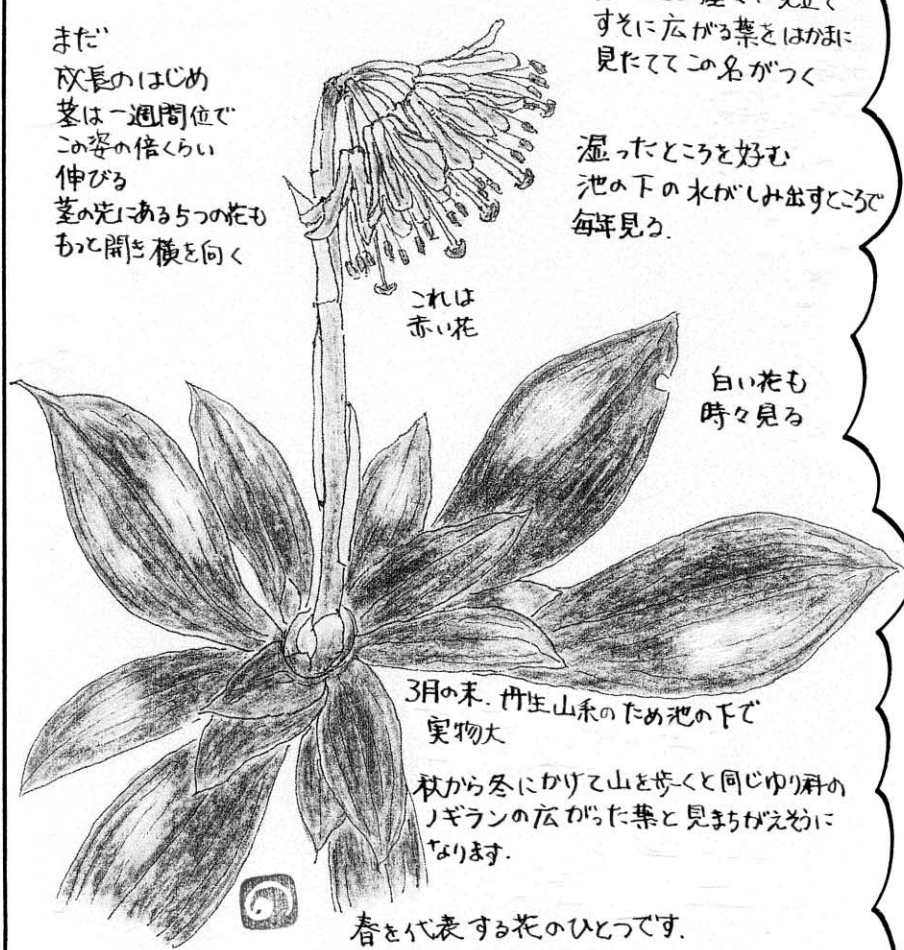 まだ
成長のはじめ
茎は一週間位で
この姿の倍くらい
伸びる
茎の先にある5つの花も
もっと開き横を向く
すそに広がる葉をはかまに
見たててこの名がつく
湿ったところを好む
池の下の水がしみ出すところで
毎年見る.
これは
赤い花
白い花も
時々見る
3月の末.丹生山系のため池の下で
実物大
秋から冬にかけて山を歩くと同じゆり科の
ノギランの広がった葉と見まちがえそうに
なります.
春を代表する花のひとつです.